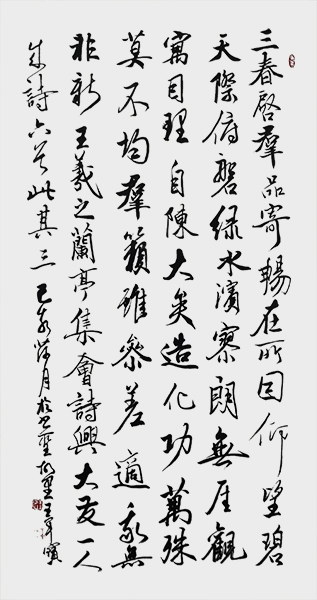 三春啓羣品寄暢在所因仰望碧
天際俯磐绿水濱寥朗無厓觀
寓目理自陳大矣造化功萬殊
莫不均羣籟雖參差適我無
非新王羲之蘭亭集會詩興大发一人
成詩六首此其三己亥荷月於书聖故里王